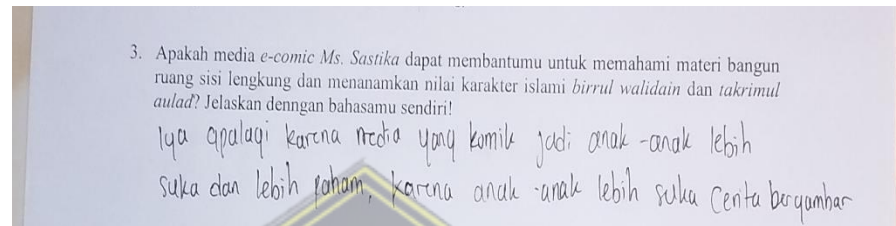 3. Apakah media e-comic Ms. Sastika dapat membantumu untuk memahami materi bangun
ruang sisi lengkung dan menanamkan nilai karakter islami birrul walidain dan takrimul
aulad? Jelaskan denngan bahasamu sendiri!
Iya apalagi karena media yang komik jadi anak-anak lebih
suka dan lebih paham, karena anak-anak lebih suka Cerita bergambar